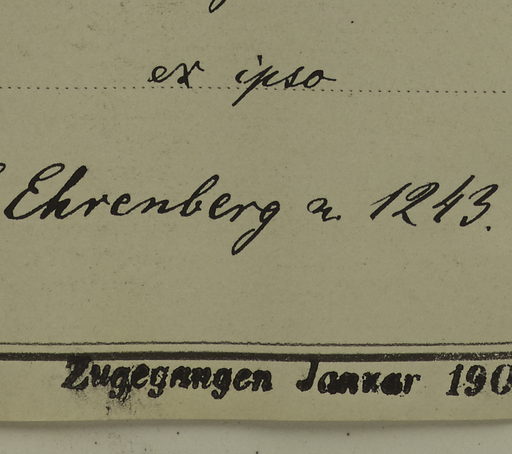 ex ipso
Ehrenberg n. 1243.
Zugegangen Januar 190